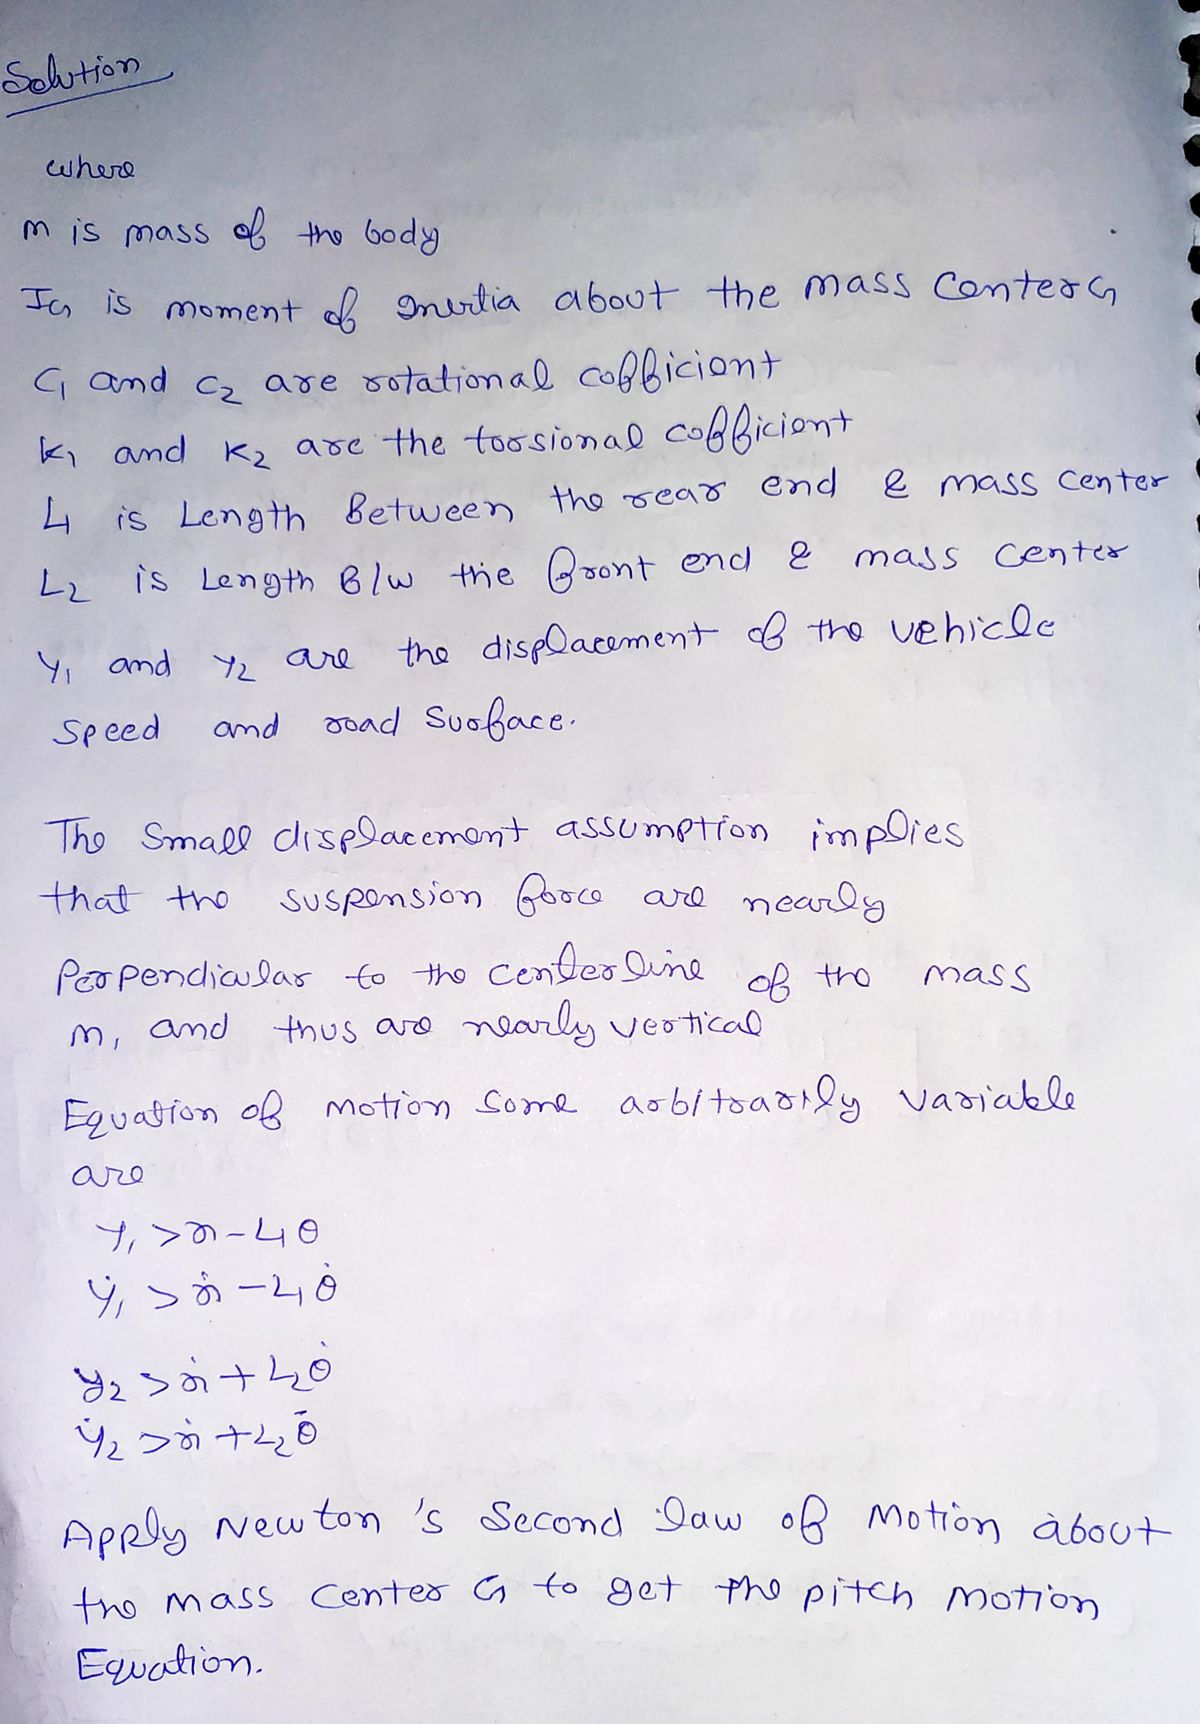 Solution
where
m is mass of the body
IG is moment of Inertia about the mass center G
C1 and C2 are rotational cofficient
K1 and K2 are the torsional cofficient
L1 is Length Between the rear end & mass center
L2 is Length B/w the front end & mass center
Y1 and Y2 are the displacement of the vehicle
Speed and road Surface.
The Small displacement assumption implies
that the suspension force are nearly
Perpendicular to the centerline of the mass
m, and thus are nearly vertical
Equation of motion Some arbitrarily variable
are
Y1 > x - L1θ
ẏ1 > ẋ - L1θ̇
y2 > ẋ + L2θ̇
ẏ2 > ẋ + L2θ̄
Apply Newton's Second law of Motion about
the mass center G to get the pitch motion
Equation.